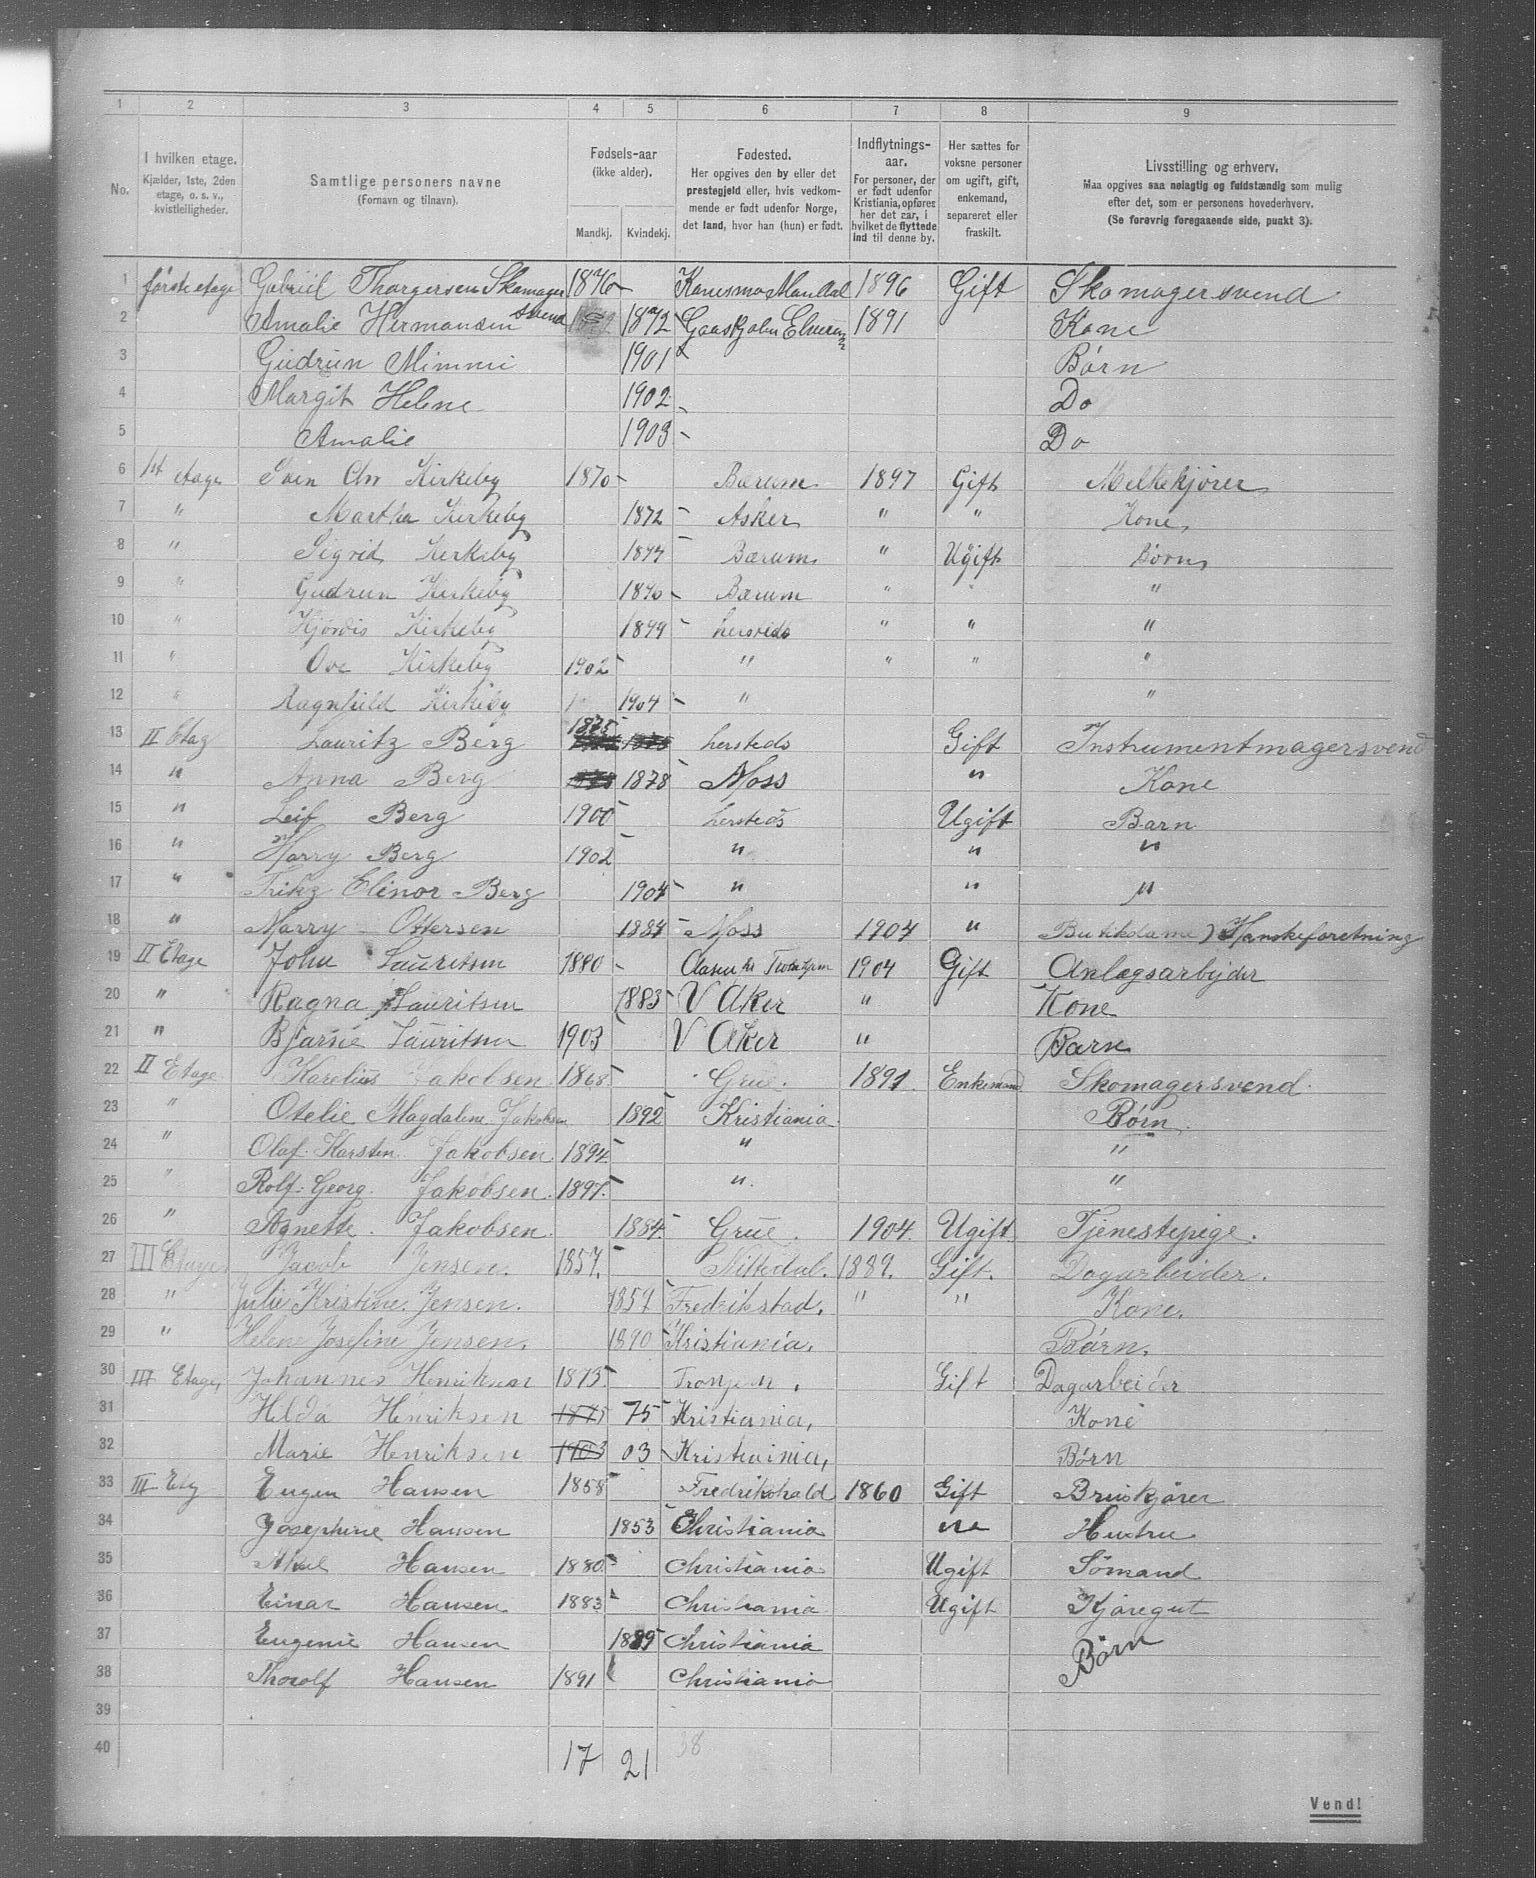 1 2 3 4 5 6 7 8 9
No.
I hvilken etage.
Kjælder, 1ste, 2den etage, o. s. v., kvistleiligheder.
Samtlige personers navne
(Fornavn og tilnavn).
Fødsels-aar
(ikke alder).
Mandkj. Kvindekj.
Fødested.
Her opgives den by eller det prestegjeld eller, hvis vedkommende er født udenfor Norge, det land, hvor han (hun) er født.
Indflytnings-aar.
For personer, der er født udenfor Kristiania, opføres her det aar, i hvilket de flyttede ind til denne by.
Her sættes for voksne personer om ugift, gift, enkemand, separeret eller fraskilt.
Livsstilling og erhverv.
Maa opgives saa nøiagtig og fuldstændig som mulig efter det, som er personens hovederhverv.
(Se forøvrig foregaaende side, punkt 3).
1 første etage Gabriel Thorgersen Skomager svend 1876 - Mandal 1896 Gift Skomagersvend
2 Amalie Hermansen 1872 Elverum 1891 Kone
3 Gudrun Mimmi 1901 Børn
4 Margit Helene 1902 - Do
5 Amalie 1903 - Do
6 1st etage Sven Chr Kirkeby 1870 - Bærum 1897 Gift Melkekjører
7 " Martha Kirkeby 1872 - Asker " " Kone
8 " Sigrid Kirkeby 1894 - Bærum " Ugift Børn
9 " Gudrun Kirkeby 1896 - Bærum " " "
10 " Hjørdis Kirkeby 1899 - hersteds " " "
11 " Ove Kirkeby 1902 - " " " "
12 " Ragnhild Kirkeby 1904 - " "
13 II Etag Lauritz Berg 1875 hersteds Gift Instrumentmagersvend
14 " Anna Berg 1878 - Moss " Kone
15 " Leif Berg 1900 - hersteds Ugift Barn
16 " Harry Berg 1902 - " " "
17 " Elinor Berg 1904 - " " "
18 " Marry Ottersen 1884 - Moss 1904 " Butikdame) Hanskeforetning
19 II Etage John Lauritsen 1880 - 1904 Gift Anlægsarbejder
20 " Ragna Lauritsen 1883 - V Aker " Kone
21 " Bjarne Lauritsen 1903 V Aker " Barn
22 II Etage Karelius Jakobsen 1868 - Grue. 1891 Enkemand Skomagersvend.
23 " Otelie Magdalene Jakobsen 1892 - Kristiania Børn.
24 " Olaf Karsten Jakobsen. 1894 - " "
25 " Rolf Georg. Jakobsen. 1897 - " "
26 " Agnette. Jakobsen. 1884 - Grue. 1904 Ugift Tjenestepige.
27 III Etage Jacob Jensen. 1857. - Nittedal. 1889. Gift. Dagarbeider.
28 " Julie Kristine. Jensen. 1857 - Fredrikstad. " " Kone.
29 " Helene Josefine Jensen. 1890 - Kristiania. Børn.
30 III Etage, Johannes Henriksen 1873 - Gift Dagarbeider
31 Hilda Henriksen 1875 75 - Kristiania, Kone
32 Marie Henriksen 1903 03 - Kristiania, Børn
33 III Etg Eugen Hansen 1858 - Fredrikshald 1860 Gift Bruskjører
34 Josephine Hansen 1853 - Christiania Hustru
35 Hansen 1880 - Christiania Ugift Sömand
36 Einar Hansen 1883 - Christiania Ugift Kjøregut
37 Eugenie Hansen 1885 - Christiania Børn
38 Thorolf Hansen 1891 Christiania
39
40 17 21 38
Vend!